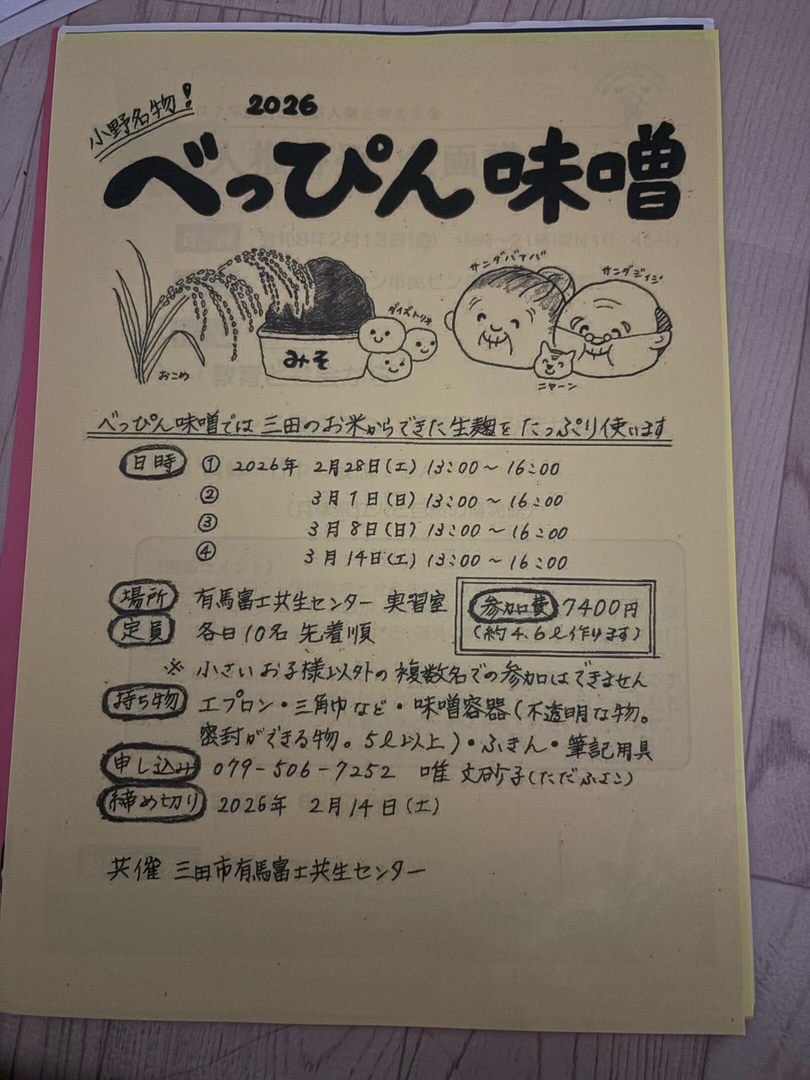 小野名物!
2026
べっぴん味噌
サンダバアバ
サンダジイジ
ダイズトリオ
みそ
おこめ
ニャーン
べっぴん味噌では三田のお米からできた生麹をたっぷり使います
日時 ① 2026年 2月28日(土) 13:00~16:00
② 3月1日(日) 13:00~16:00
③ 3月8日(日) 13:00~16:00
④ 3月14日(土) 13:00~16:00
場所 有馬富士共生センター 実習室
参加費 7400円
定員 各日10名 先着順
(約4.6ℓ作ります)
※ 小さいお子様以外の複数名での参加はできません
持ち物 エプロン・三角巾など・味噌容器(不透明な物。
密封ができる物。5ℓ以上)・ふきん・筆記用具
申し込み 079-506-7252 唯 文砂子(ただふさこ)
締め切り 2026年 2月14日(土)
共催 三田市有馬富士共生センター